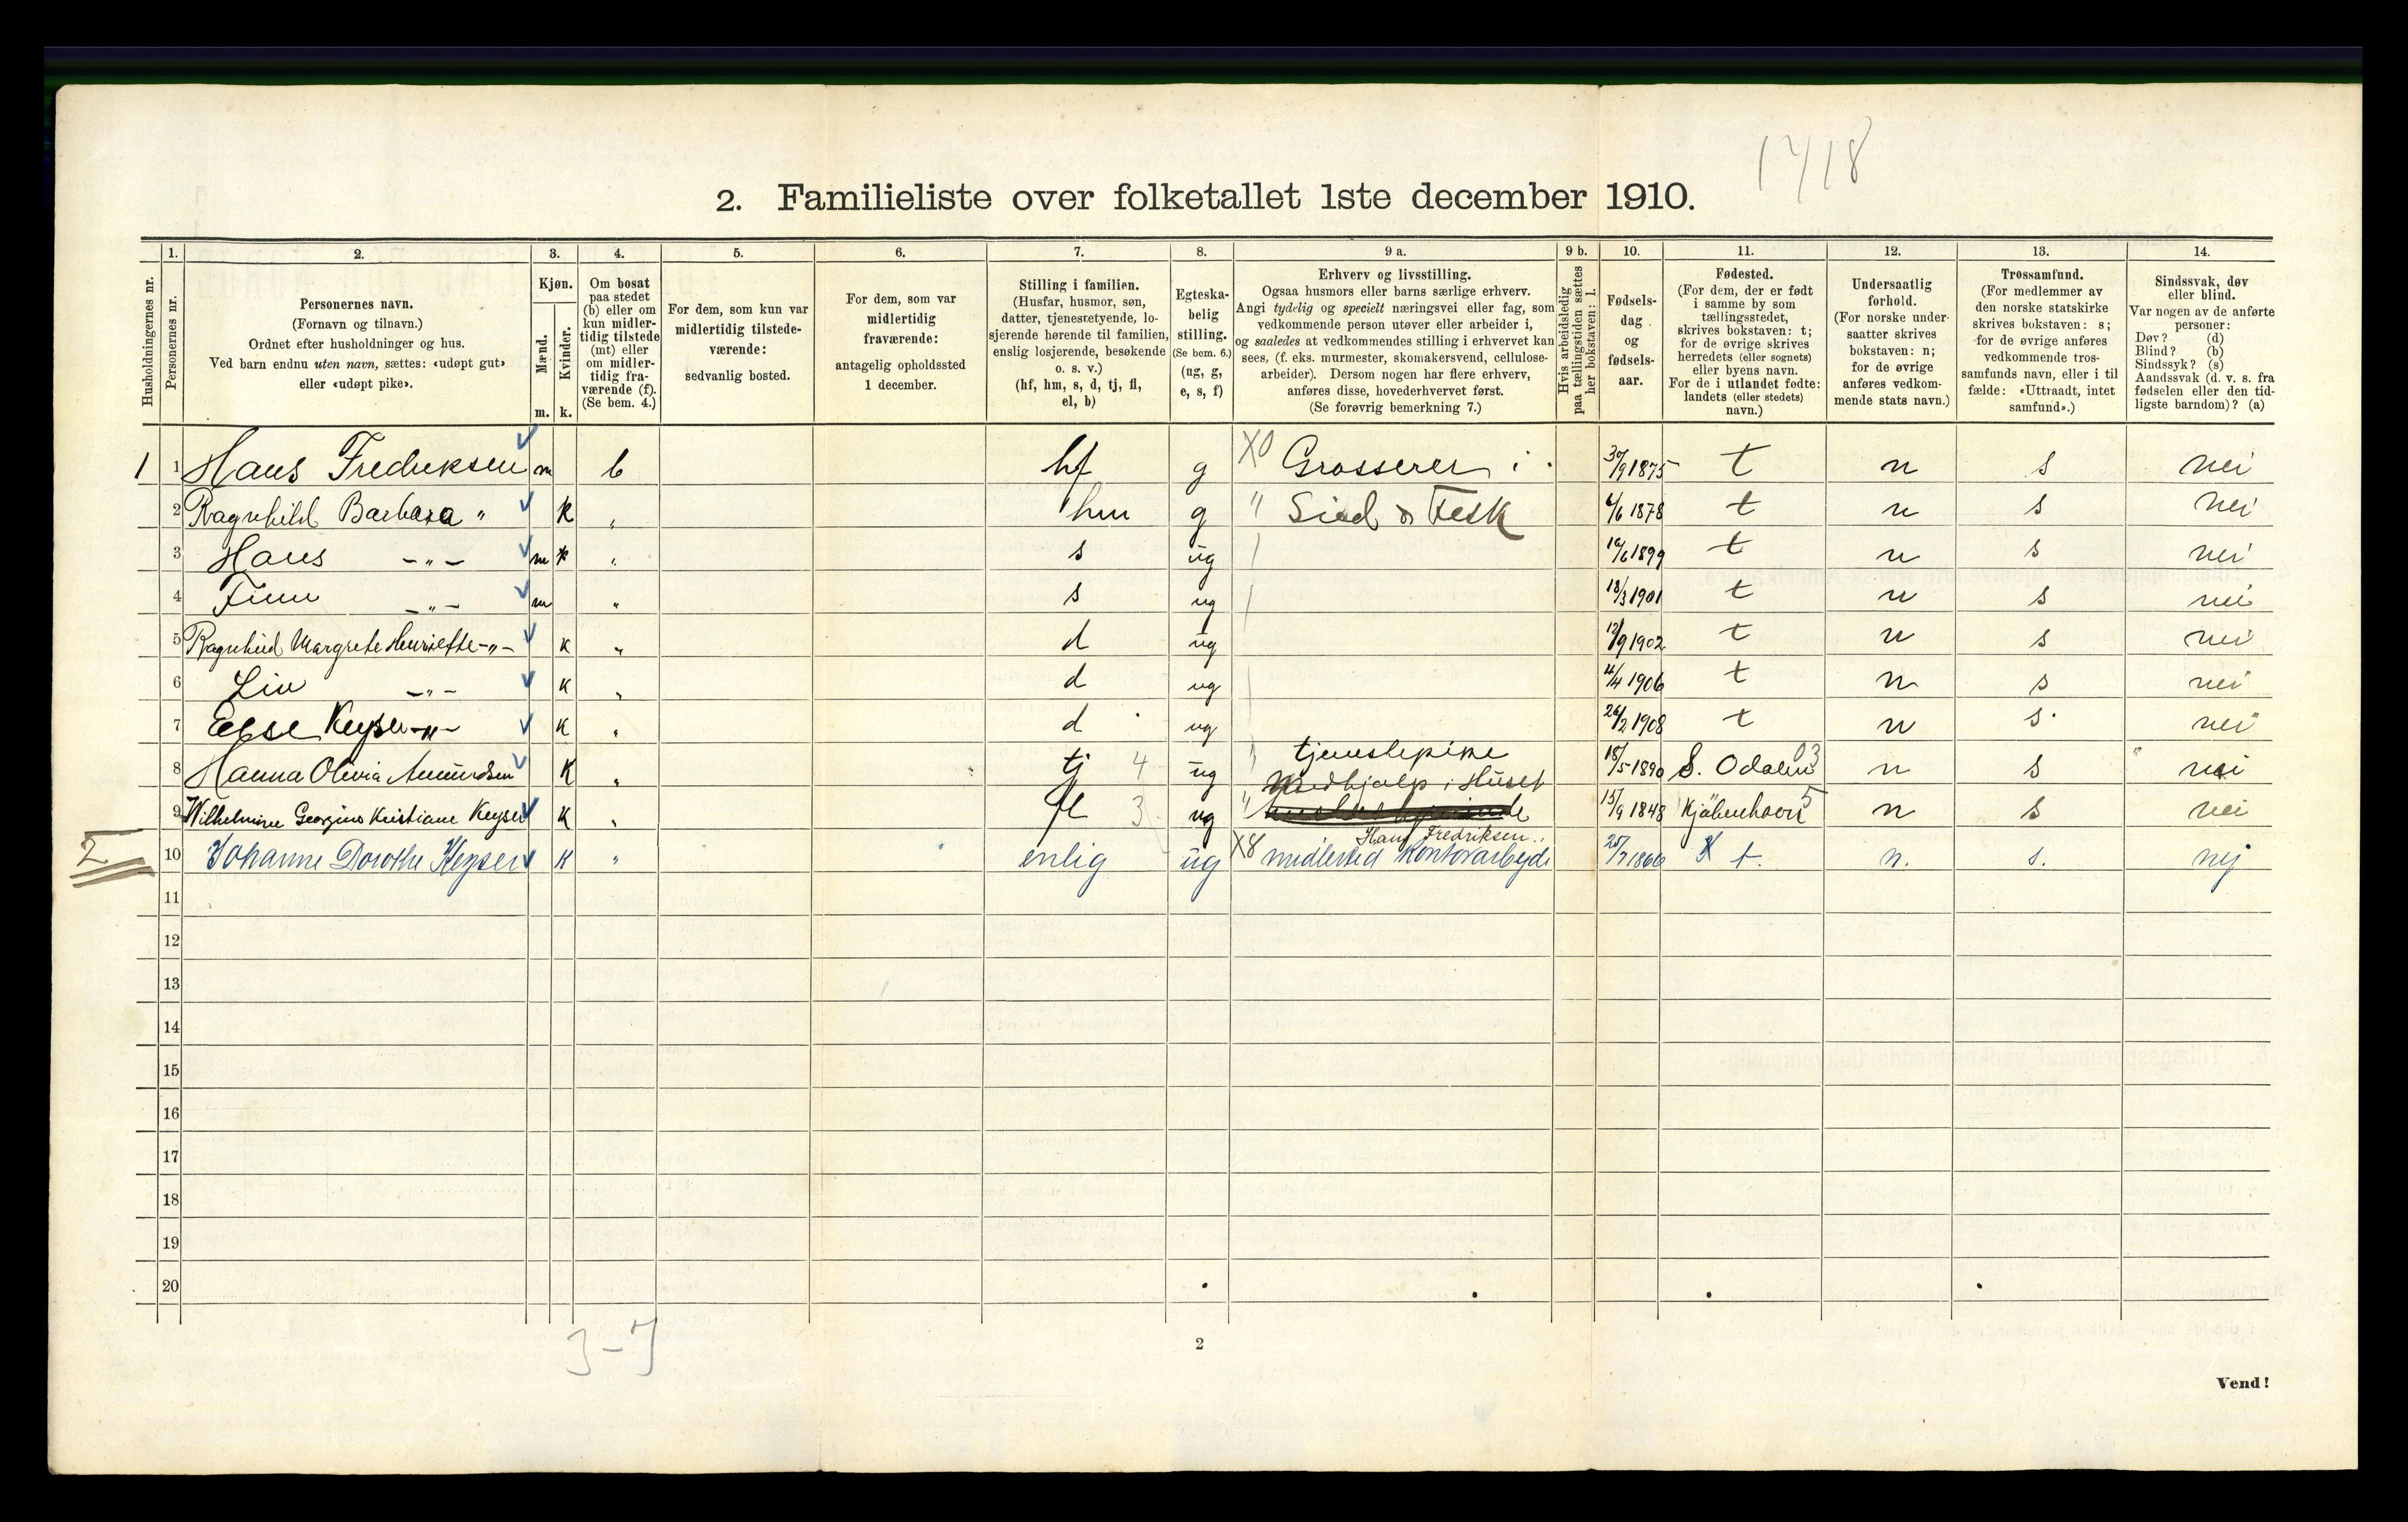 1718
2. Familieliste over folketallet 1ste december 1910.
Husholdningernes nr.
1.
Personernes nr.
2.
Personernes navn.
(Fornavn og tilnavn.)
Ordnet efter husholdninger og hus.
Ved barn endnu uten navn, sættes: «udøpt gut»
eller «udøpt pike».
3.
Kjøn.
Mænd.
Kvinder.
m. k.
4.
Om bosat
paa stedet
(b) eller om
kun midler-
tidig tilstede
(mt) eller
om midler-
tidig fra-
værende (f).
(Se bem. 4.)
5.
For dem, som kun var
midlertidig tilstede-
værende:
sedvanlig bosted.
6.
For dem, som var
midlertidig
fraværende:
antagelig opholdssted
1 december.
7.
Stilling i familien.
(Husfar, husmor, søn,
datter, tjenestetyende, lo-
sjerende hørende til familien,
enslig losjerende, besøkende
o. s. v.)
(hf, hm, s, d, tj, fl,
el, b)
8.
Egteska-
belig
stilling.
(Se bem. 6.)
(ug, g,
e, s, f)
9 a.
Erhverv og livsstilling.
Ogsaa husmors eller barns særlige erhverv.
Angi tydelig og specielt næringsvei eller fag, som
vedkommende person utøver eller arbeider i,
og saaledes at vedkommendes stilling i erhvervet kan
sees, (f. eks. murmester, skomakersvend, cellulose-
arbeider). Dersom nogen har flere erhverv,
anføres disse, hovederhvervet først.
(Se forøvrig bemerkning 7.)
9 b.
Hvis arbeidsledig
paa tællingstiden sættes
her bokstaven: l.
10.
Fødsels-
dag
og
fødsels-
aar.
11.
Fødested.
(For dem, der er født
i samme by som
tællingsstedet,
skrives bokstaven: t;
for de øvrige skrives
herredets (eller sognets)
eller byens navn.
For de i utlandet fødte:
landets (eller stedets)
navn.)
12.
Undersaatlig
forhold.
(For norske under-
saatter skrives
bokstaven: n;
for de øvrige
anføres vedkom-
mende stats navn.)
13.
Trossamfund.
(For medlemmer av
den norske statskirke
skrives bokstaven: s;
for de øvrige anføres
vedkommende tros-
samfunds navn, eller i til
fælde: «Uttraadt, intet
samfund».)
14.
Sindssvak, døv
eller blind.
Var nogen av de anførte
personer:
Døv? (d)
Blind? (b)
Sindssyk? (s)
Aandssvak (d. v. s. fra
fødselen eller den tid-
ligste barndom)? (a)
1 1 Hans Fredriksen m b hf g X0 Grosserer i 30/9 1875 t n s nei
2 Ragnhild Barbara " k " hm g " Sild & Fesk 6/6 1878 t n s nei
3 Hans -"- m k " s ug 1899 t n s nei
4 Finn -"- m " s ug 18/3 1901 t n s nei
5 Ragnhild Margrete Henriette -"- k " d ug 12/9 1902 t n s nei
6 Liv -"- k " d ug 4/4 1906 t n s nei
7 Else Keyser -"- k " d ug 26/2 1908 t n s nei
8 Hanna Olivia Amundsen K " tj 4 ug " tjenstepike 18/5 1890 S. Odalen 03 n s nei
Medhjælp i Huset
9 Wilhelmine Georgine Kristiane Keyser K " fl 3 ug " 15/9 1848 Kjöbenhavn 5 n s nei
Hans Fredriksen
2 10 Johanne Dorothe Keyser K " enlig ug X8 midlertid kontorarbejde 25/7 1866 X t. n. s. nej
11
12
13
14
15
16
17
18
19
20
3-7
2
Vend!